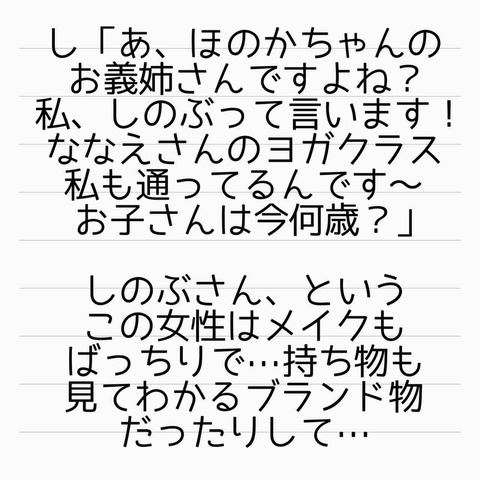 し「あ、ほのかちゃんの
お義姉さんですよね？
私、しのぶって言います！
ななえさんのヨガクラス
私も通ってるんです〜
お子さんは今何歳？」
しのぶさん、という
この女性はメイクも
ばっちりで…持ち物も
見てわかるブランド物
だったりして…